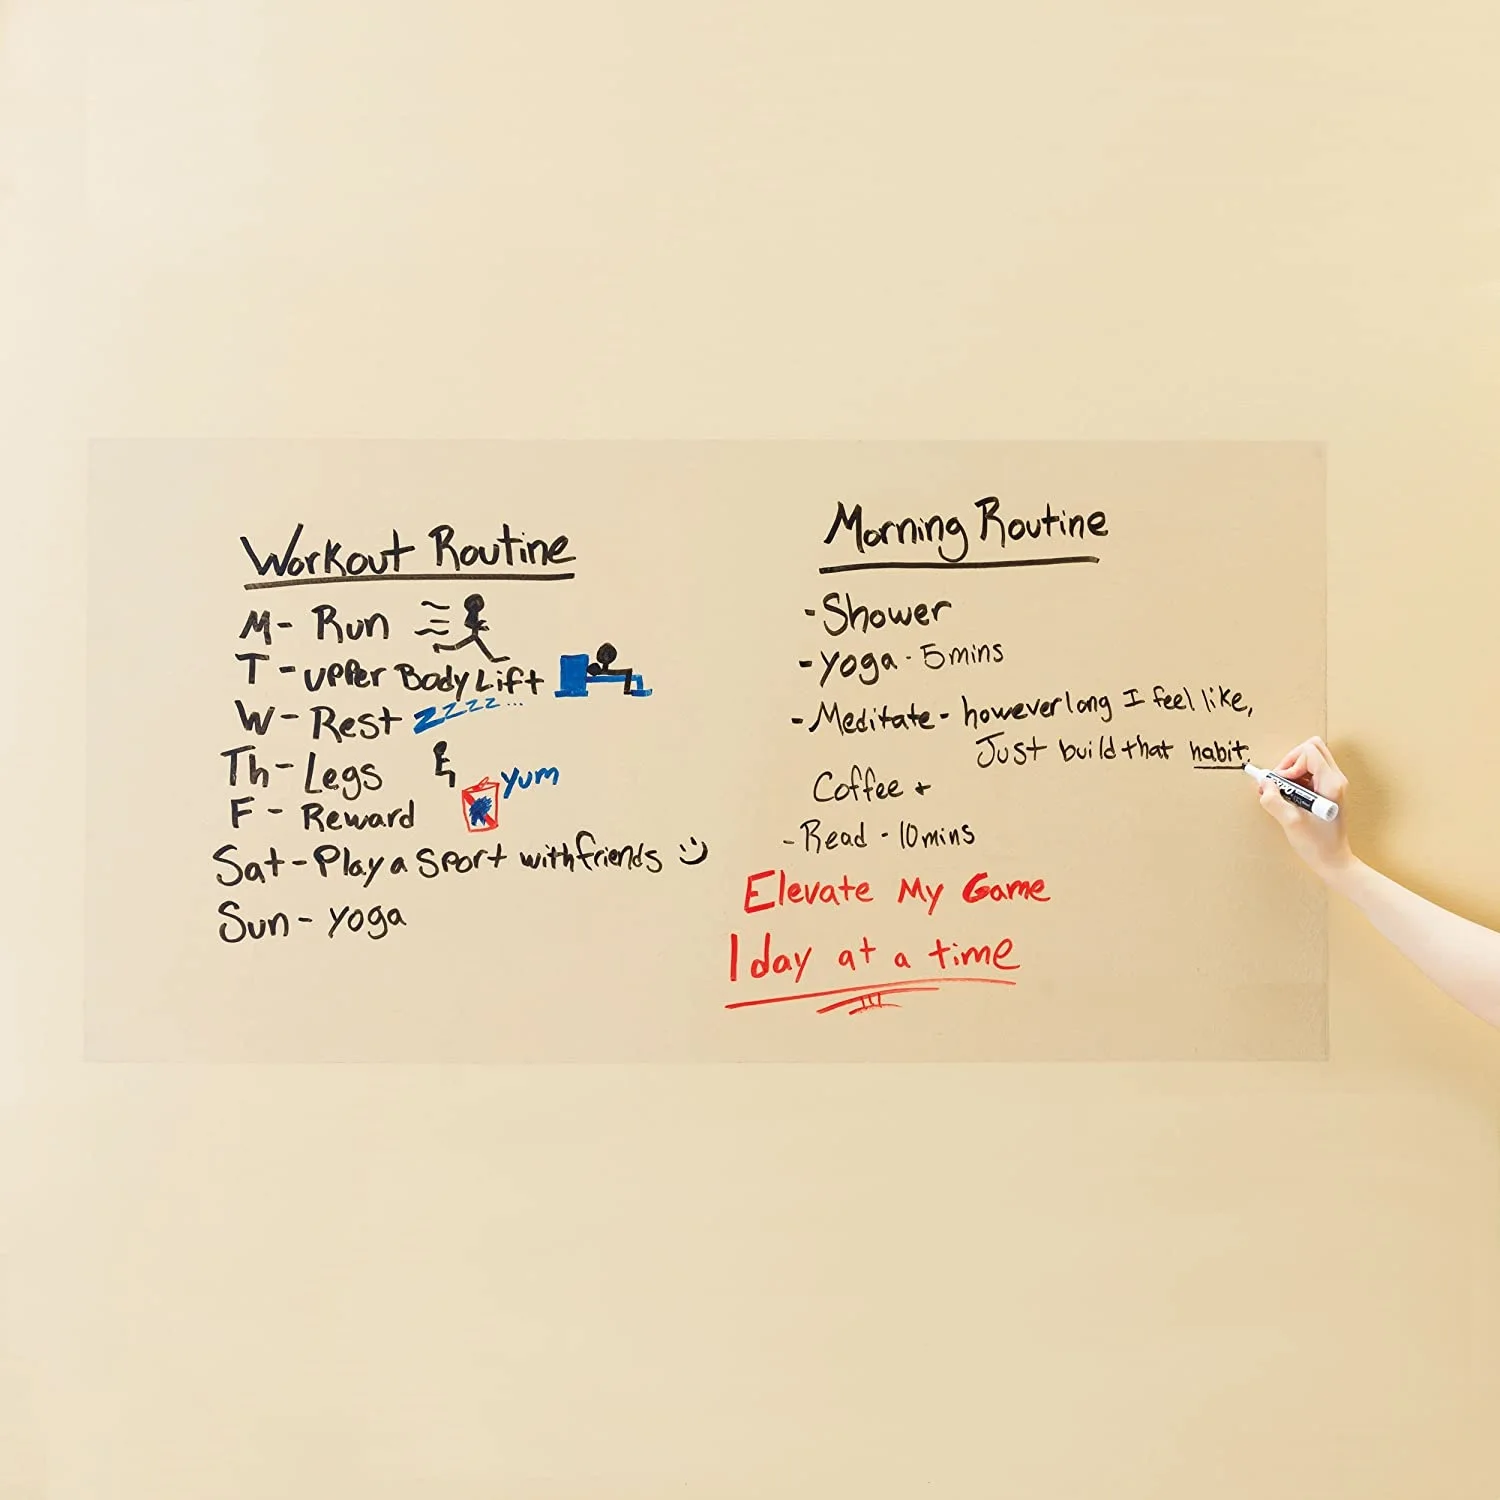 Workout Routine
M- Run
T - upper Body Lift
W - Rest zzzzz...
Th - Legs
yum
F - Reward
Sat - Play a Sport with friends :)
Sun - yoga
Morning Routine
- Shower
- yoga - 5 mins
- Meditate - however long I feel like,
Just build that habit.
Coffee +
- Read - 10 mins
Elevate My Game
1 day at a time